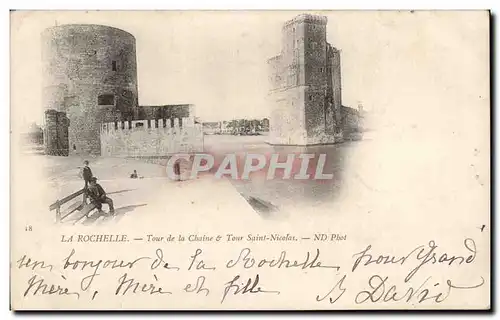 CPARAMA
18
LA ROCHELLE. — Tour de la Chaîne & Tour Saint-Nicolas. — ND Phot
bonjour de La Rochelle, pour Grand
Mère, Mère et fille B David